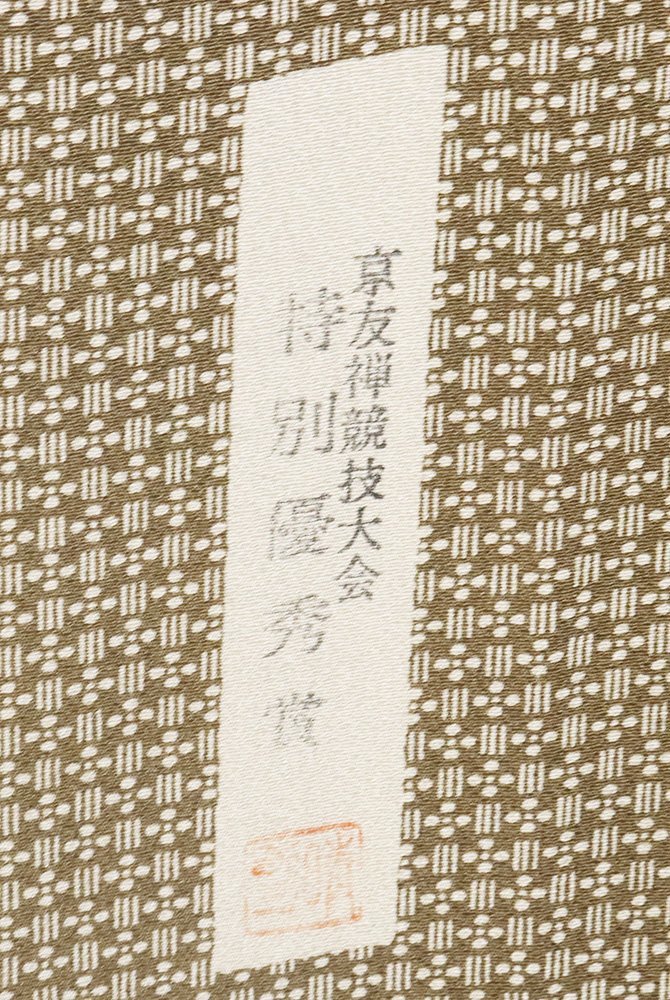 京友禅競技大会
特別優秀賞